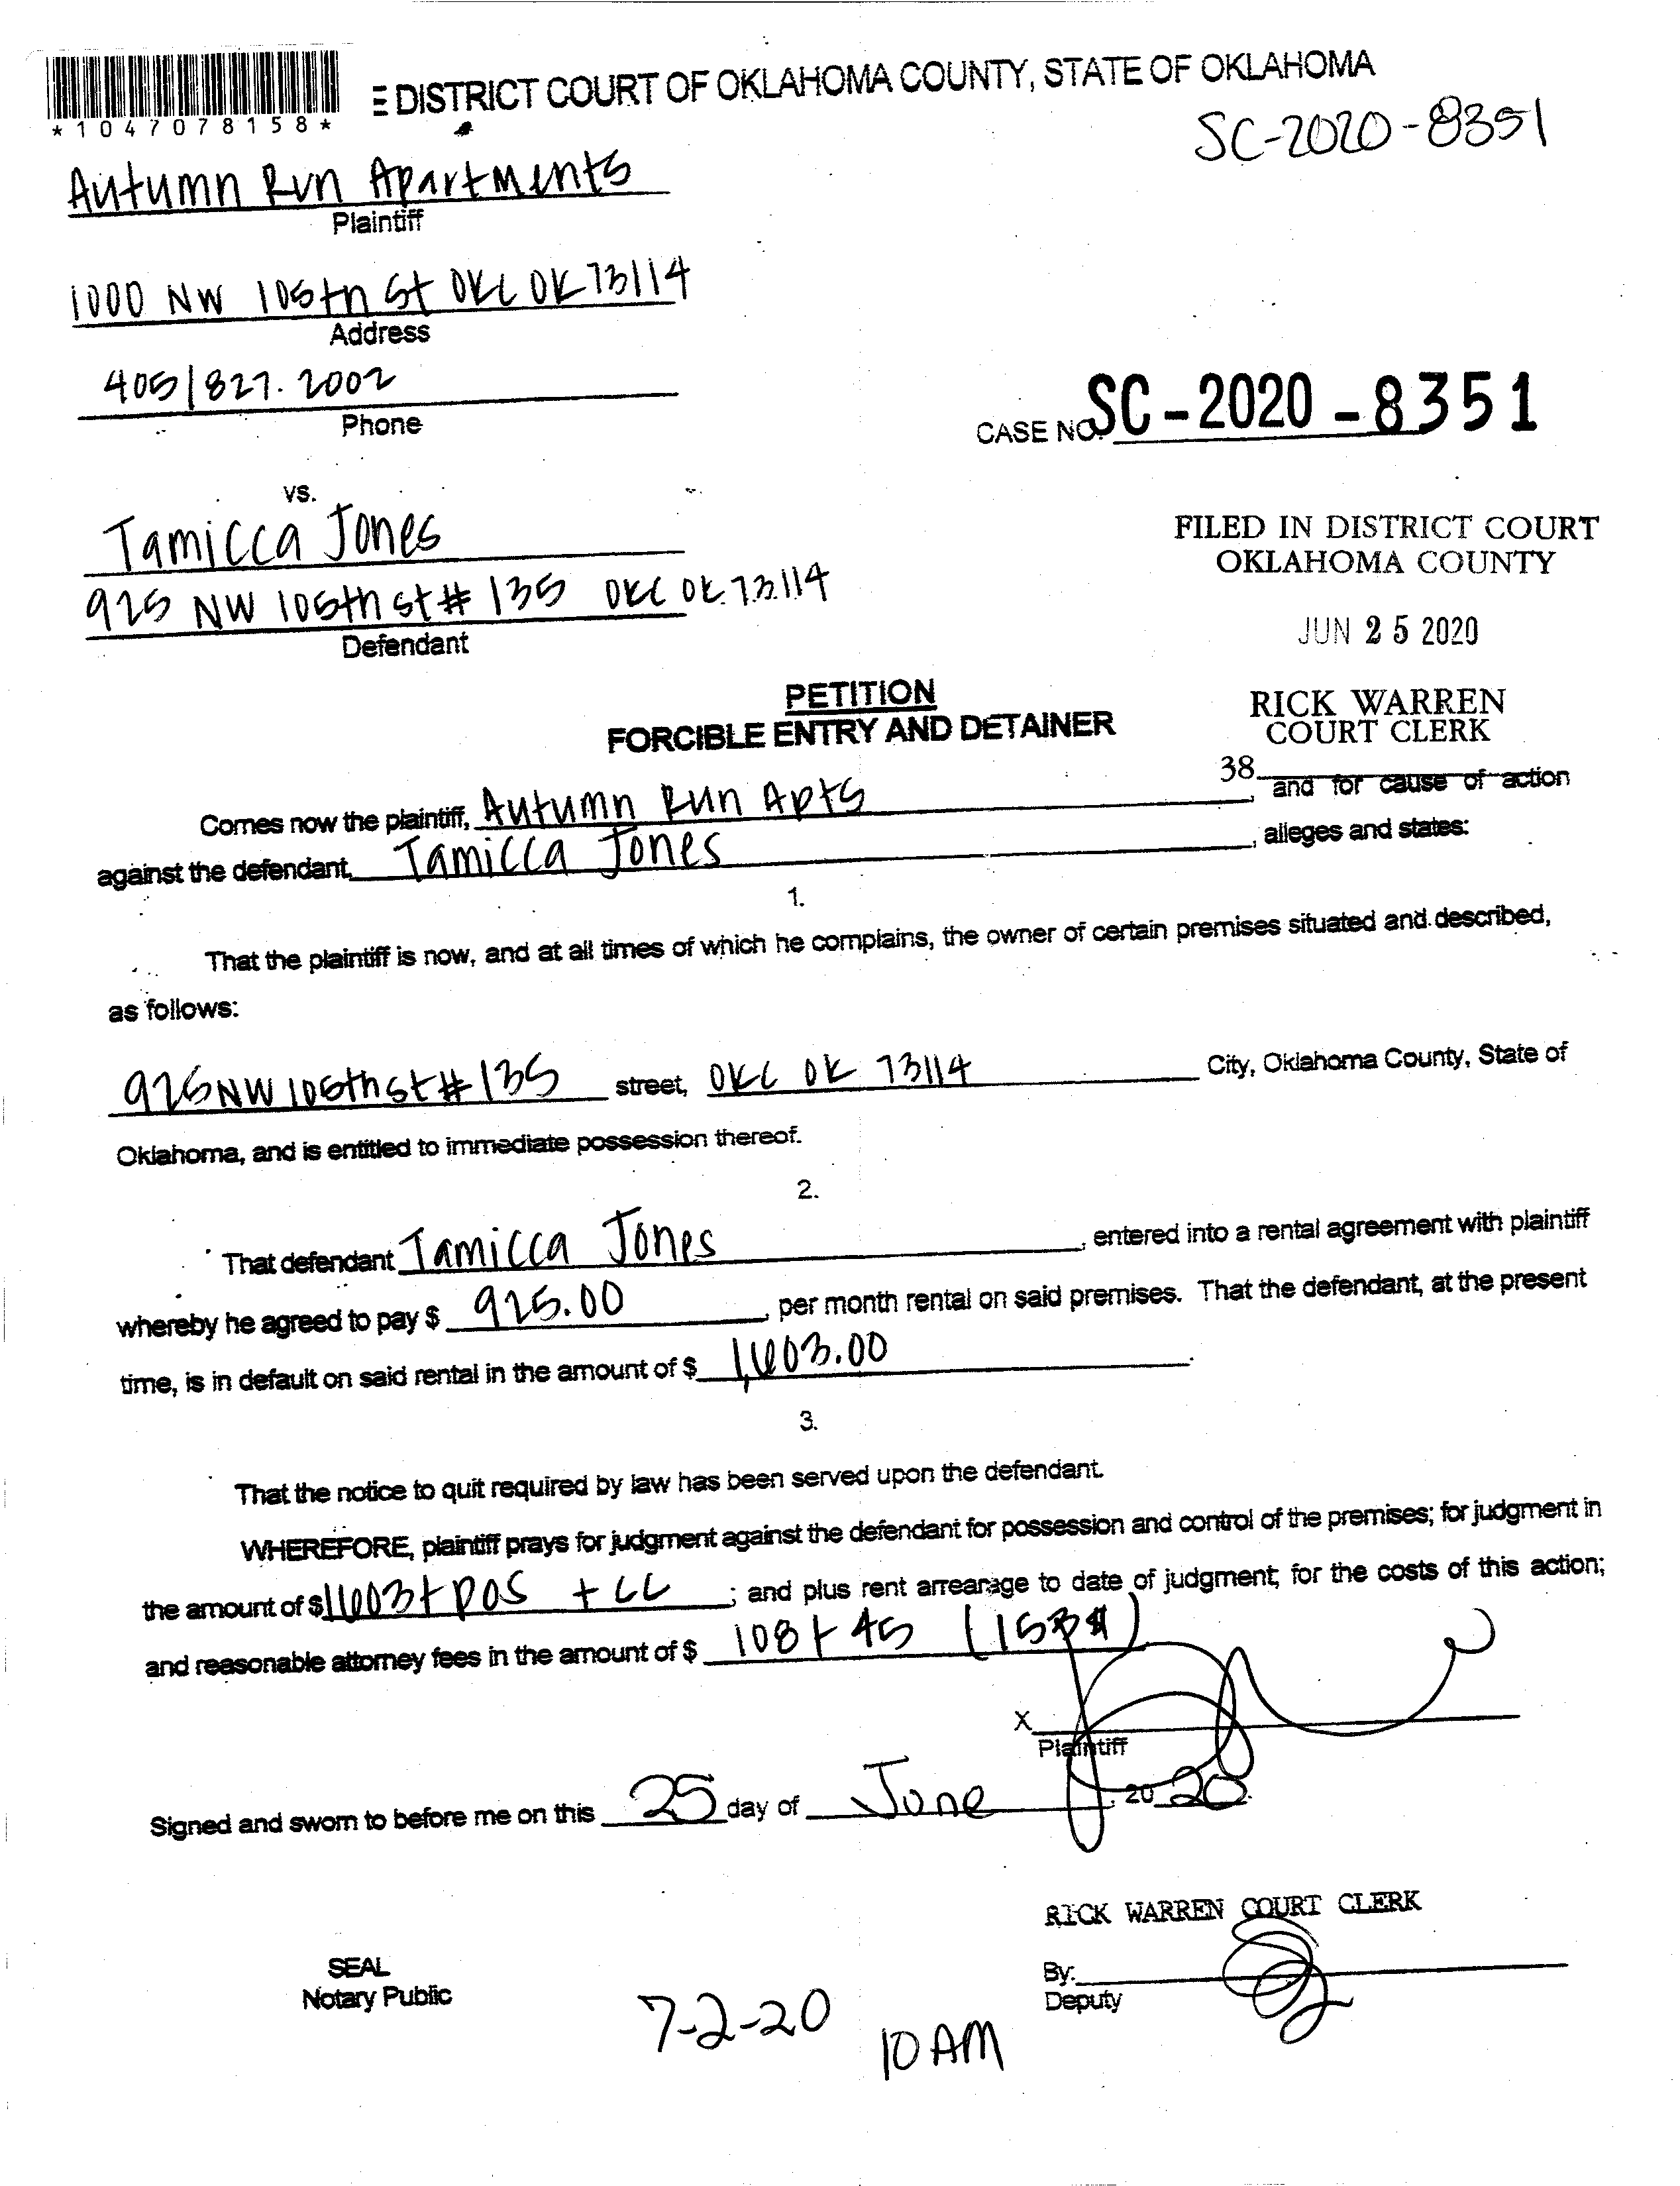 *1047078158*
E DISTRICT COURT OF OKLAHOMA COUNTY, STATE OF OKLAHOMA
SC-2020-8351
Autumn Run Apartments
Plaintiff
1000 NW 105th St OKC OK 73114
Address
405|827.2002
Phone
CASE NO. SC-2020-8351
vs.
Tamicca Jones
925 NW 105th st # 135 OKC OK. 73114
Defendant
FILED IN DISTRICT COURT
OKLAHOMA COUNTY
JUN 25 2020
RICK WARREN
COURT CLERK
38
PETITION
FORCIBLE ENTRY AND DETAINER
Comes now the plaintiff, Autumn Run Apts, and for cause of action
against the defendant, Tamicca Jones, alleges and states:
1.
That the plaintiff is now, and at all times of which he complains, the owner of certain premises situated and described,
as follows:
925 NW 105th st # 135 street, OKC OK 73114 City, Oklahoma County, State of
Oklahoma, and is entitled to immediate possession thereof.
2.
That defendant Tamicca Jones, entered into a rental agreement with plaintiff
whereby he agreed to pay $ 925.00, per month rental on said premises. That the defendant, at the present
time, is in default on said rental in the amount of $ 1,603.00.
3.
That the notice to quit required by law has been served upon the defendant.
WHEREFORE, plaintiff prays for judgment against the defendant for possession and control of the premises; for judgment in
the amount of $ 1603 + POS + CC; and plus rent arrearage to date of judgment; for the costs of this action;
and reasonable attorney fees in the amount of $ 108 + 45 (153
X
Plaintiff
Signed and sworn to before me on this 25 day of June, 20 20.
RICK WARREN COURT CLERK
SEAL
Notary Public
By:
Deputy
7-2-20
10 AM